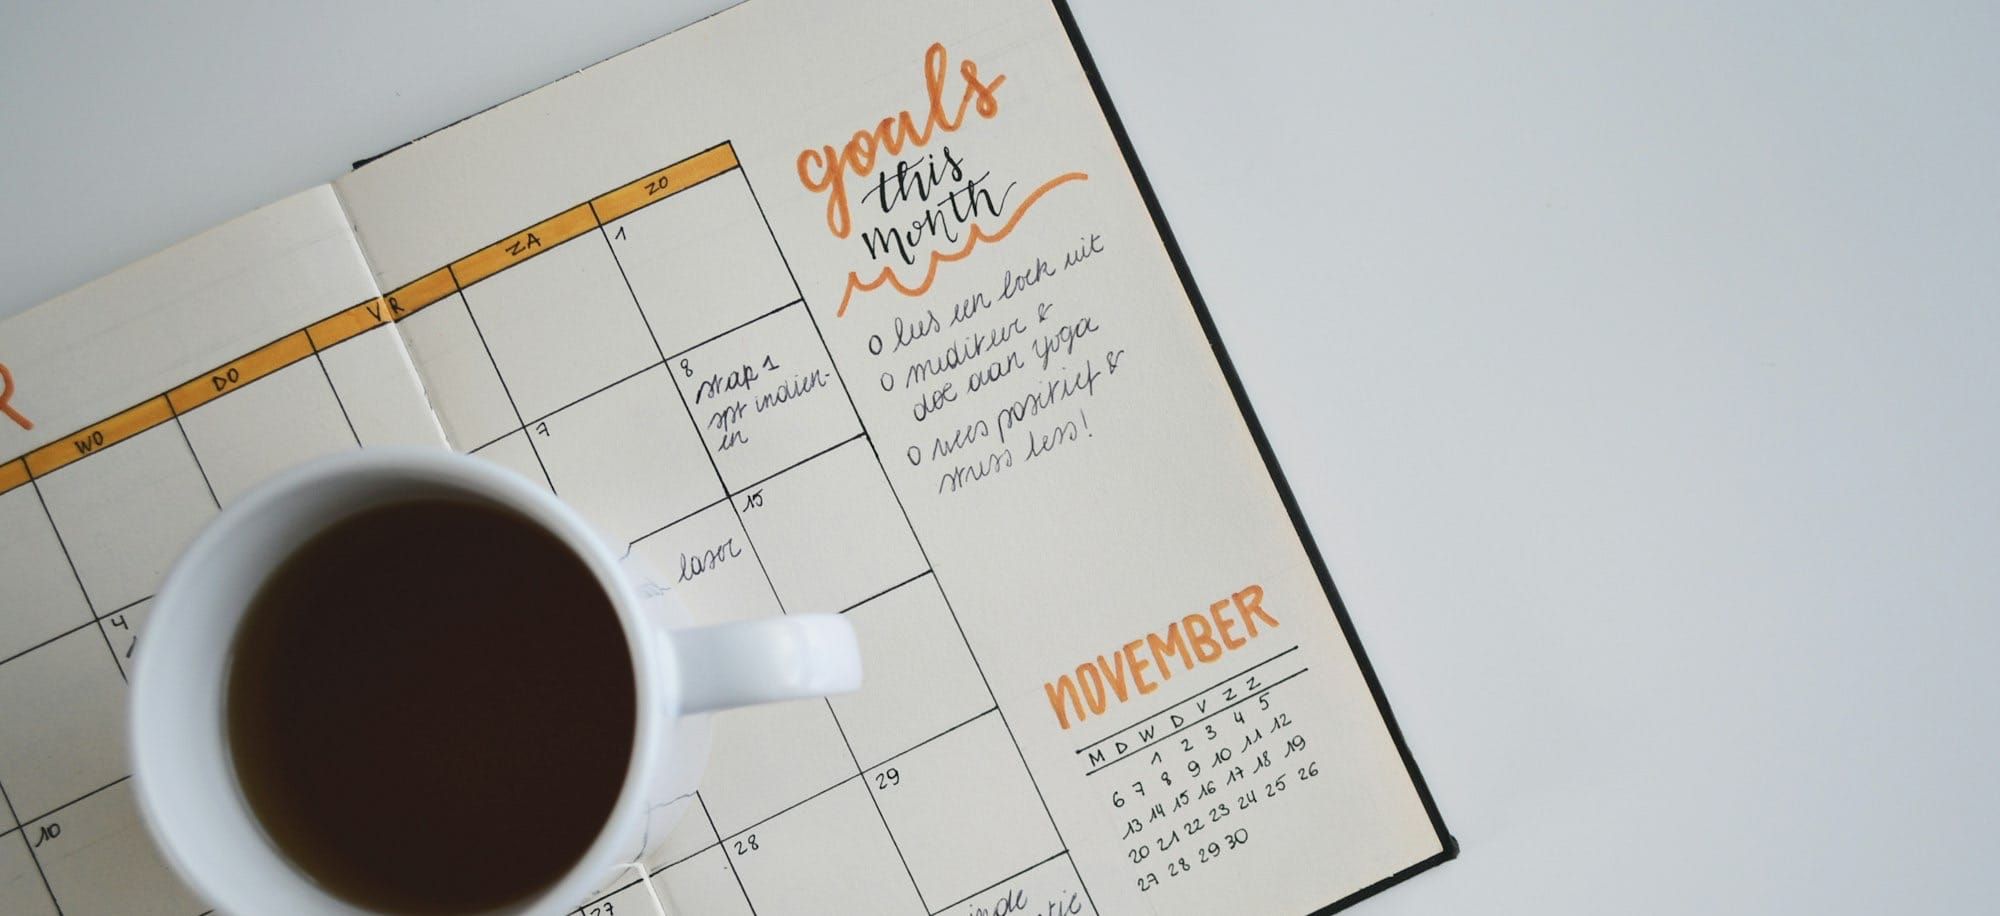 goals
this
month
o lees een boek uit
o mediteer &
doe aan yoga
o wees positief &
stress less!
R
WO DO VR ZA ZO
1
4 7 8
stap 1
indien-
en
10 15
laser
27 28 29
NOVEMBER
M D W D V Z Z
1 2 3 4 5
6 7 8 9 10 11 12
13 14 15 16 17 18 19
20 21 22 23 24 25 26
27 28 29 30